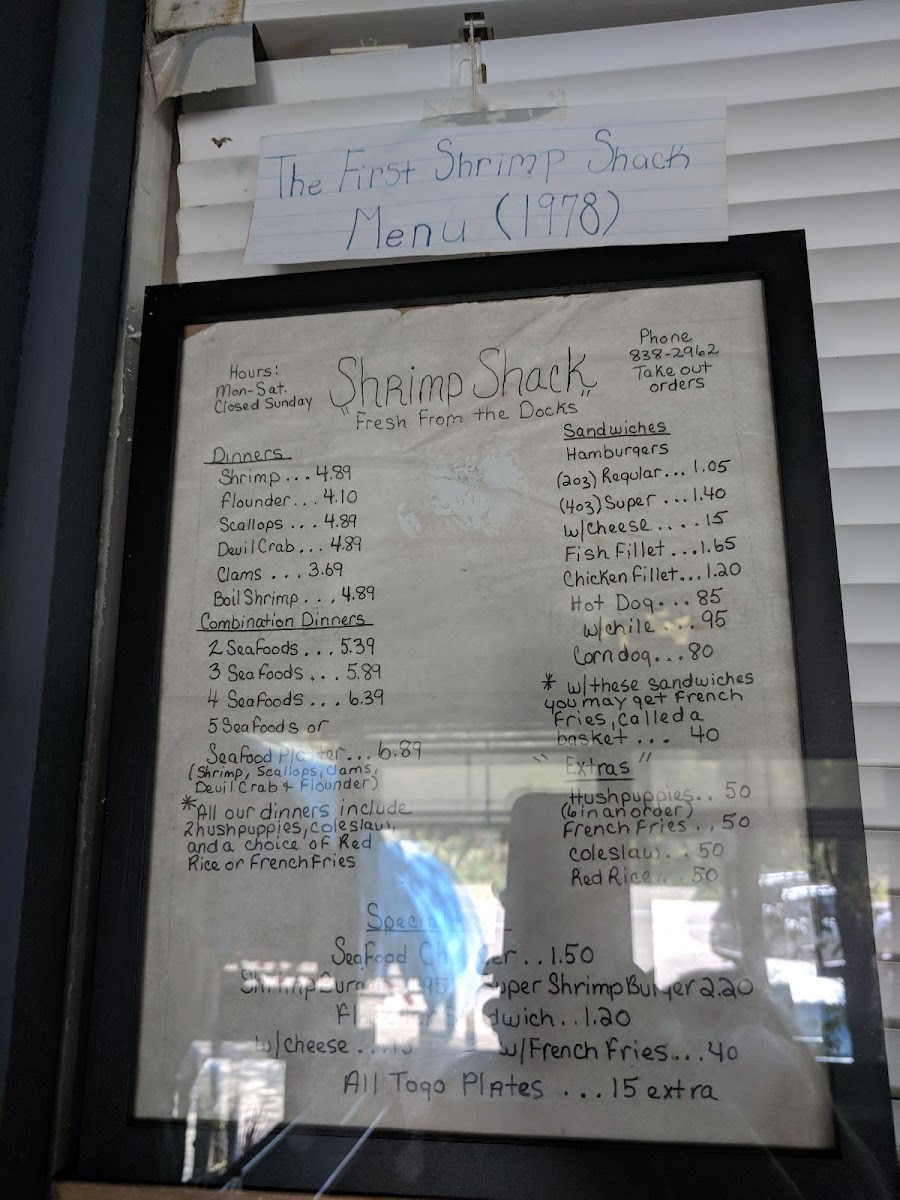 The First Shrimp Shack
Menu (1978)
Hours:
Mon-Sat.
Closed Sunday
Shrimp Shack
"Fresh From the Docks"
Phone
838-2962
Take out
orders
Dinners
Shrimp... 4.89
Flounder... 4.10
Scallops... 4.89
Devil Crab... 4.89
Clams ... 3.69
Boil Shrimp... 4.89
Combination Dinners
2 Seafoods ... 5.39
3 Seafoods ... 5.89
4 Seafoods ... 6.39
5 Seafoods or
Seafood Platter... 6.89
(Shrimp, Scallops, Clams,
Devil Crab & Flounder)
*All our dinners include
2 hushpuppies, coleslaw,
and a choice of Red
Rice or French Fries
Sandwiches
Hamburgers
(2oz) Regular... 1.05
(4oz) Super ... 1.40
w/cheese .... 15
Fish Fillet ... 1.65
Chicken fillet... 1.20
Hot Dog... 85
w/chile ... 95
Corndog... 80
* w/these sandwiches
you may get French
Fries, called a
basket ... 40
"Extras"
Hushpuppies.. 50
(6 in an order)
French Fries .. 50
coleslaw.. 50
Red Rice ... 50
Seafood .. 1.50
Super Shrimp Burger 2.20
.. 1.20
w/cheese ... w/French Fries... 40
All Togo Plates ... 15 extra